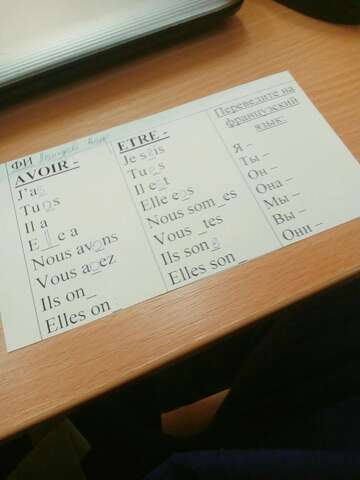 ФИ
AVOIR -
J'a
Tu as
Il a
Elle a
Nous avons
Vous a ez
Ils on_
Elles on_
ETRE -
Je s is
Tu s
Il e t
Elle e s
Nous som_es
Vous _tes
Ils son
Elles son_
Переведите на
французский
язык:
Я –
Ты –
Он –
Она –
Мы –
Вы –
Они –